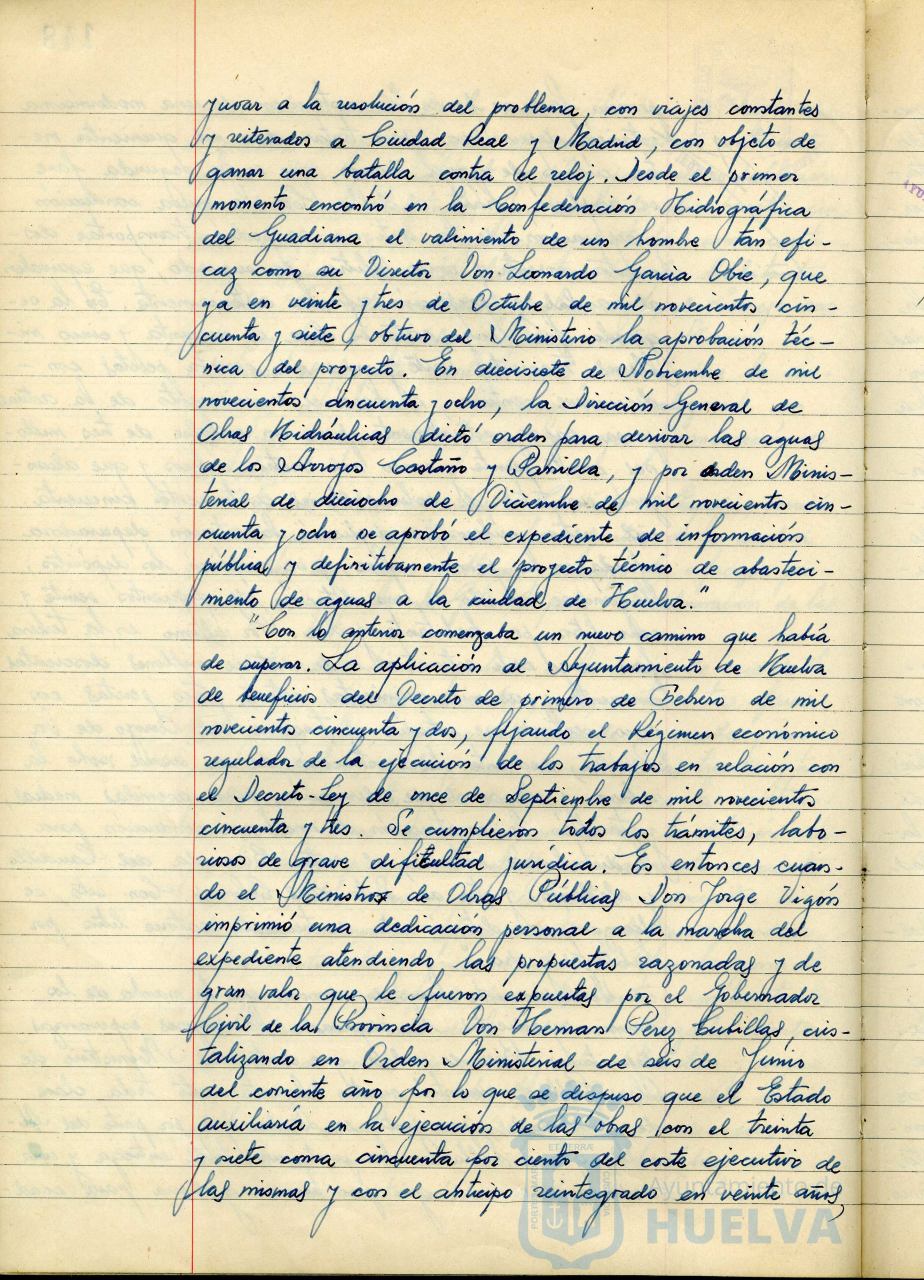 yuvar a la resolución del problema, con viajes constantes
y reiterados a Ciudad Real y Madrid, con objeto de
ganar una batalla contra el reloj. Desde el primer
momento encontró en la Confederación Hidrográfica
del Guadiana el valimiento de un hombre tan efi-
caz como su Director Don Leonardo García Obie, que
ya en veinte y tres de Octubre de mil novecientos cin-
cuenta y siete, obtuvo del Ministerio la aprobación téc-
nica del proyecto. En diecisiete de Nobiembre de mil
novecientos cincuenta y ocho, la Dirección General de
Obras Hidráulicas dictó orden para derivar las aguas
de los Arroyos Castaño y Parrilla, y por orden Minis-
terial de dieciocho de Diciembre de mil novecientos cin-
cuenta y ocho se aprobó el expediente de información
pública y definitivamente el proyecto técnico de abasteci-
miento de aguas a la ciudad de Huelva."
"Con lo anterior comenzaba un nuevo camino que había
de superar. La aplicación al Ayuntamiento de Huelva
de beneficios del Decreto de primero de Febrero de mil
novecientos cincuenta y dos, fijando el Régimen económico
regulador de la ejecución de los trabajos en relación con
el Decreto-Ley de once de Septiembre de mil novecientos
cincuenta y tres. Se cumplieron todos los trámites, labo-
riosos de grave dificultad jurídica. Es entonces cuan-
do el Ministro de Obras Públicas Don Jorge Vigón
imprimió una dedicación personal a la marcha del
expediente atendiendo las propuestas razonadas y de
gran valor que le fueron expuestas por el Gobernador
Civil de la Provincia Don Hernan Perez Cubillas, cris-
talizando en Orden Ministerial de seis de Junio
del corriente año por lo que se dispuso que el Estado
auxiliaría en la ejecución de las obras con el treinta
y siete coma cincuenta por ciento del coste ejecutivo de
las mismas y con el anticipo reintegrado en veinte años,
Ayuntamiento de
HUELVA